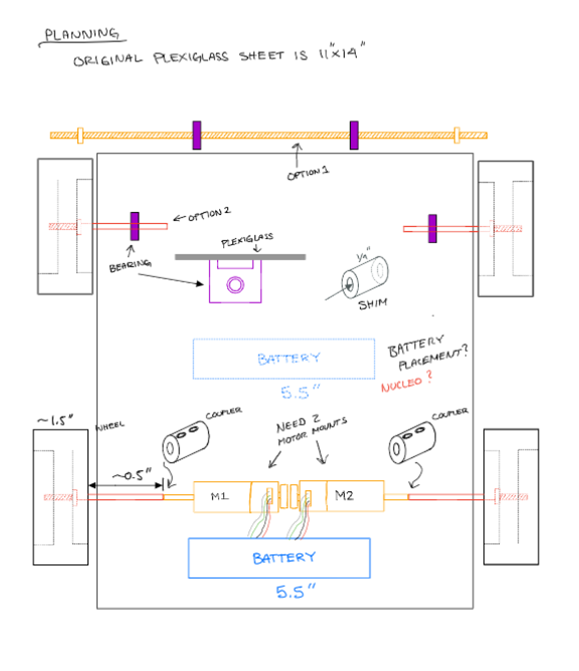 PLANNING
ORIGINAL PLEXIGLASS SHEET IS 11"x14"
OPTION 1
OPTION 2
PLEXIGLASS
BEARING
1/4"
SHIM
BATTERY
5.5"
BATTERY
PLACEMENT?
NUCLEO?
~1.5"
WHEEL
COUPLER
NEED 2
MOTOR MOUNTS
COUPLER
~0.5"
M1
M2
BATTERY
5.5"